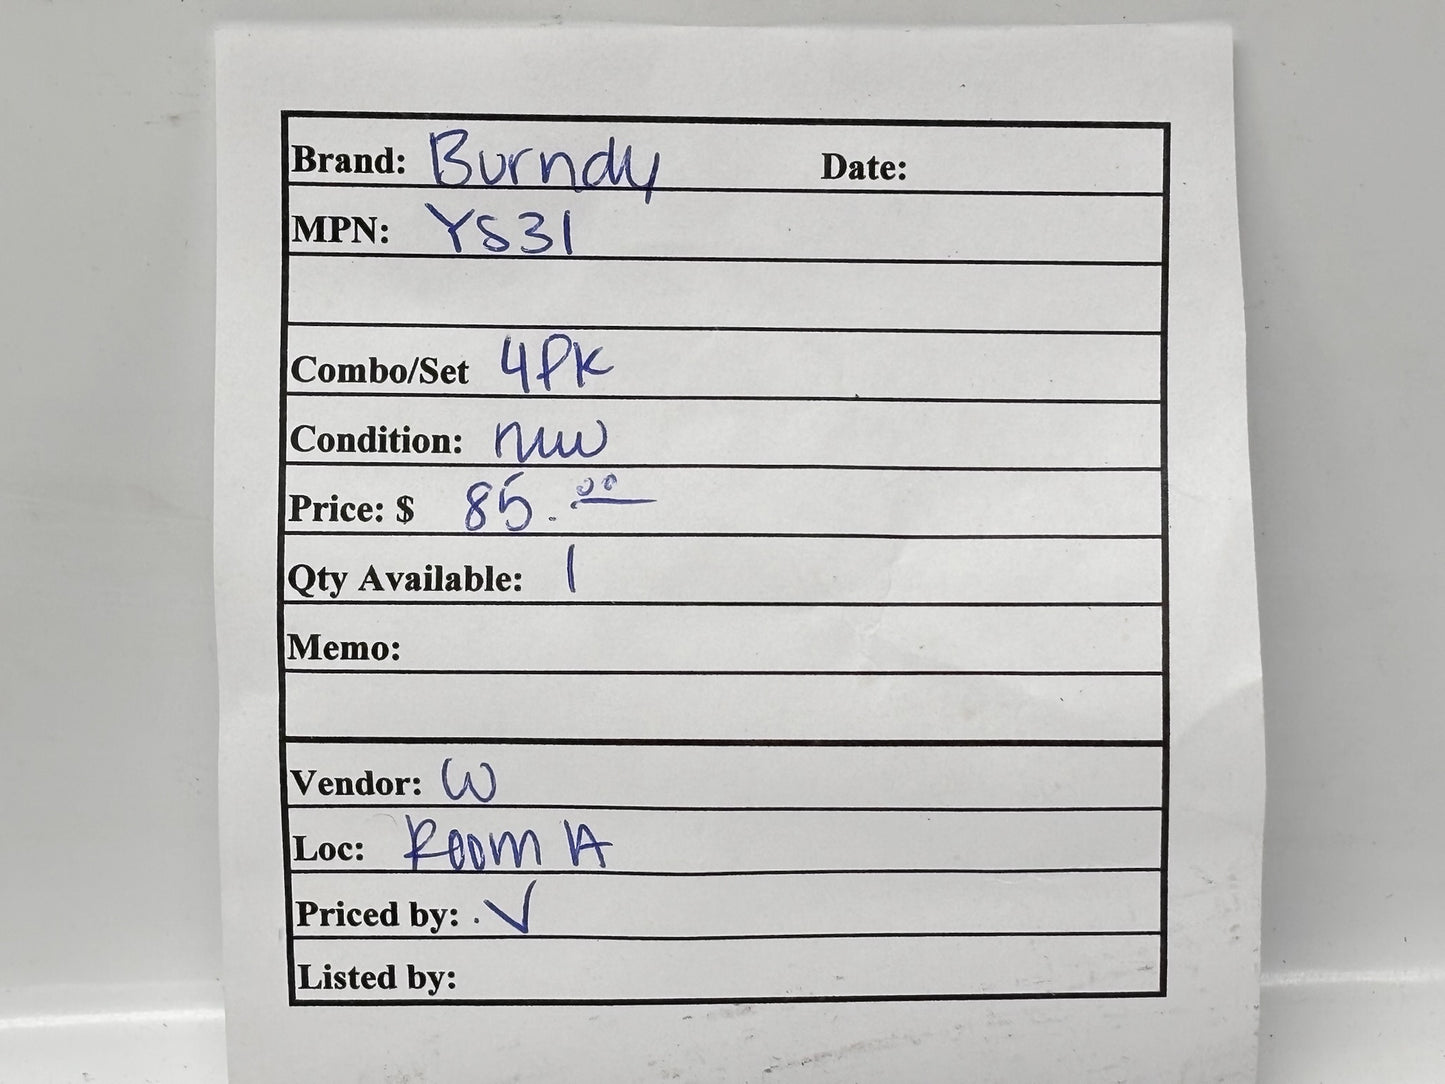 Brand: Burndy Date:
MPN: YS31
Combo/Set 4PK
Condition: new
Price: $ 85.00
Qty Available: 1
Memo:
Vendor: W
Loc: Room A
Priced by: . ✓
Listed by: